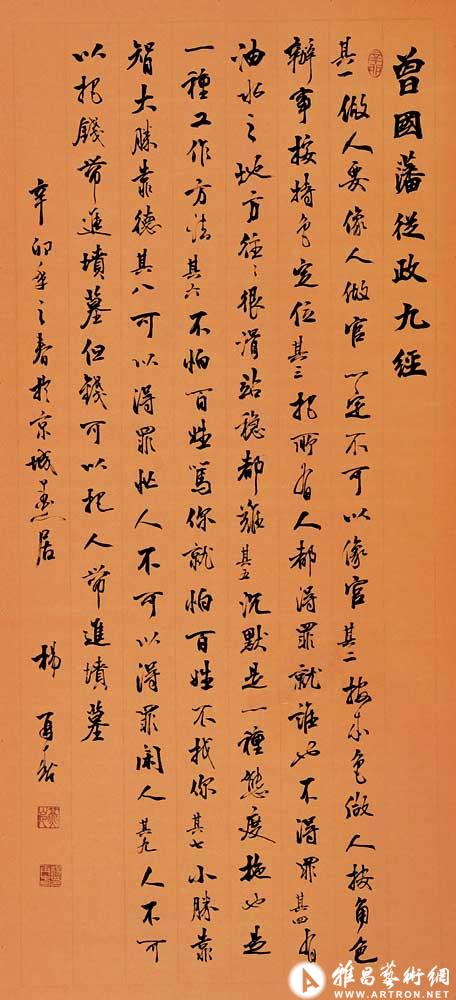 曾國藩從政九經
其一做人要像人做官一定不可以像官其二按本色做人按角色
辦事按特色定位其三把所有人都得罪就誰也不得罪其四有
油水之地方往往很滑站穩都難其五沉默是一種態度拖也是
一種工作方法其六不怕百姓罵你就怕百姓不找你其七小勝靠
智大勝靠德其八可以得罪忙人不可以得罪闲人其九人不可
以把錢帶進墳墓但錢可以把人帶進墳墓
辛卯年之春於京城燕居
楊
雅昌藝術網
WWW.ARTRON.NET